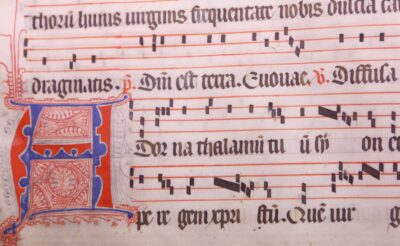 thorū huius uirginis frequentate nobis dulcia can
dragmatis. p̄. Dn̄i est terra. Euouae. v̄. Diffusa
A Dor na thalamū tu ū sy on et
pe re gem xpri stū. Quē uir g